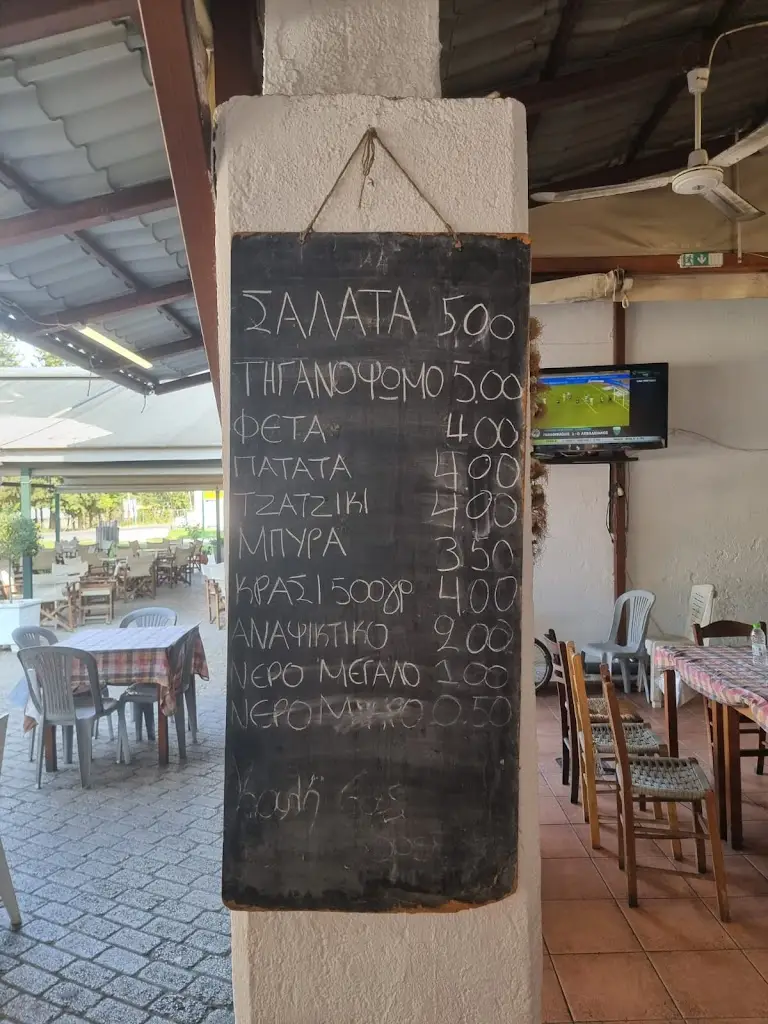 ΣΑΛΑΤΑ 5,00
ΤΗΓΑΝΟΨΩΜΟ 5.00
ΦΕΤΑ 4.00
ΠΑΤΑΤΑ 4.00
ΤΖΑΤΖΙΚΙ 4.00
ΜΠΥΡΑ 3.50
ΚΡΑΣΙ 500γρ 4.00
ΑΝΑΨΙΚΤΙΚΟ 2.00
ΝΕΡΟ ΜΕΓΑΛΟ 1.00
ΝΕΡΟ 0.50